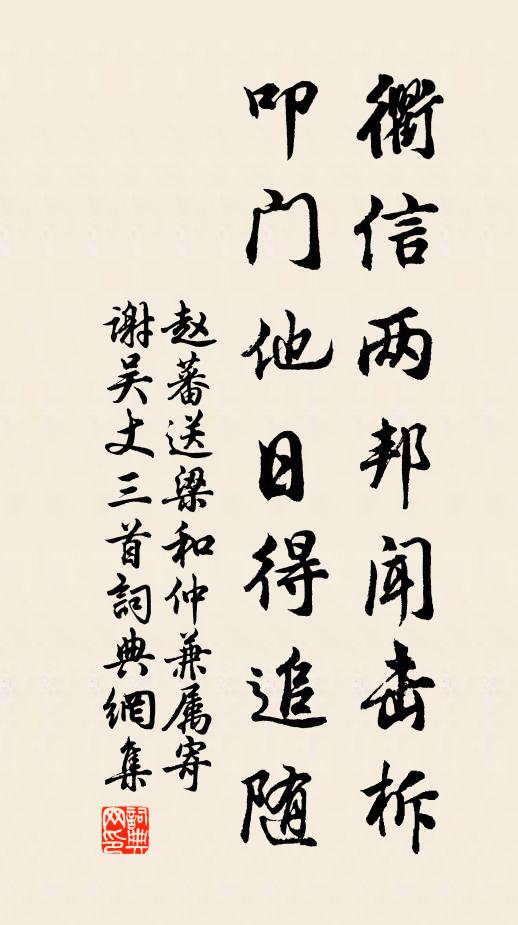 衢信两邦闻击柝
叩门他日得追随
赵蕃送梁和仲兼属寄
谢吴丈三首詞典網集
詞典
网印